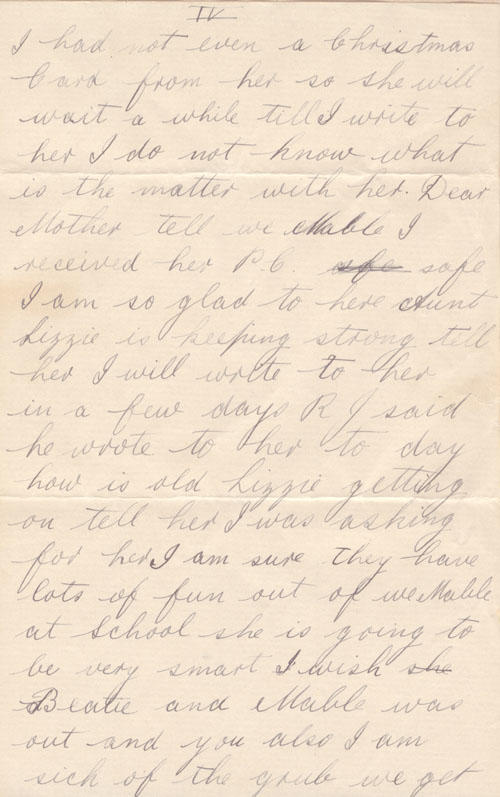 IV
I had not even a Christmas
Card from her so she will
wait a while till I write to
her I do not know what
is the matter with her. Dear
Mother tell we Mable I
received her P.C. safe safe
I am so glad to here Aunt
Lizzie is keeping strong tell
her I will write to her
in a few days R J said
he wrote to her to day
how is old Lizzie getting
on tell her I was asking
for her I am sure they have
lots of fun out of we Mable
at School she is going to
be very smart I wish she
Beatie and Mable was
out and you also I am
sick of the grub we get